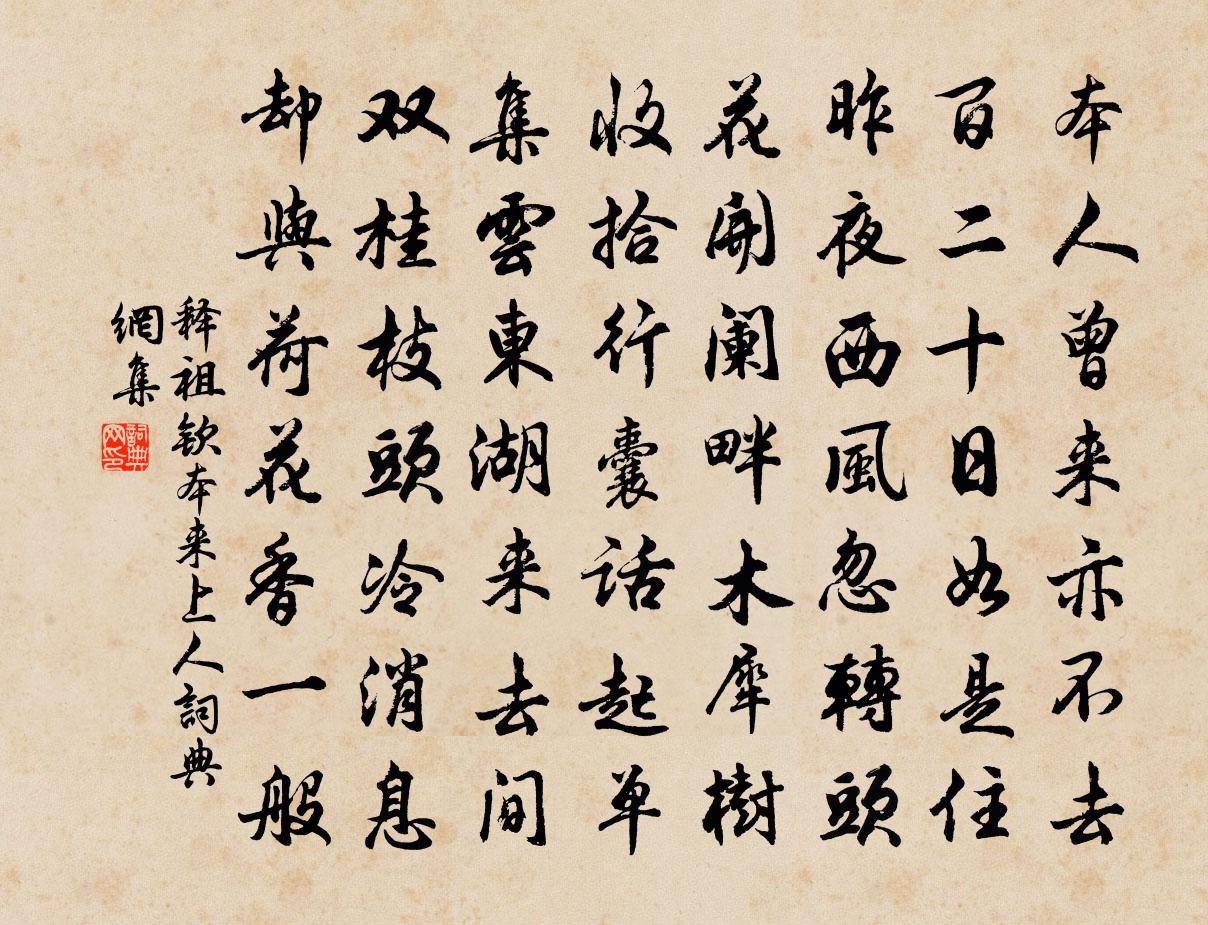 本人曾来亦不去
百二十日如是住
昨夜西風忽轉頭
花開阑畔木犀樹
收拾行囊話起单
集雲東湖来去间
双桂枝頭冷消息
却與荷花香一般
释祖钦本来上人詞典
網集
詞典
网印